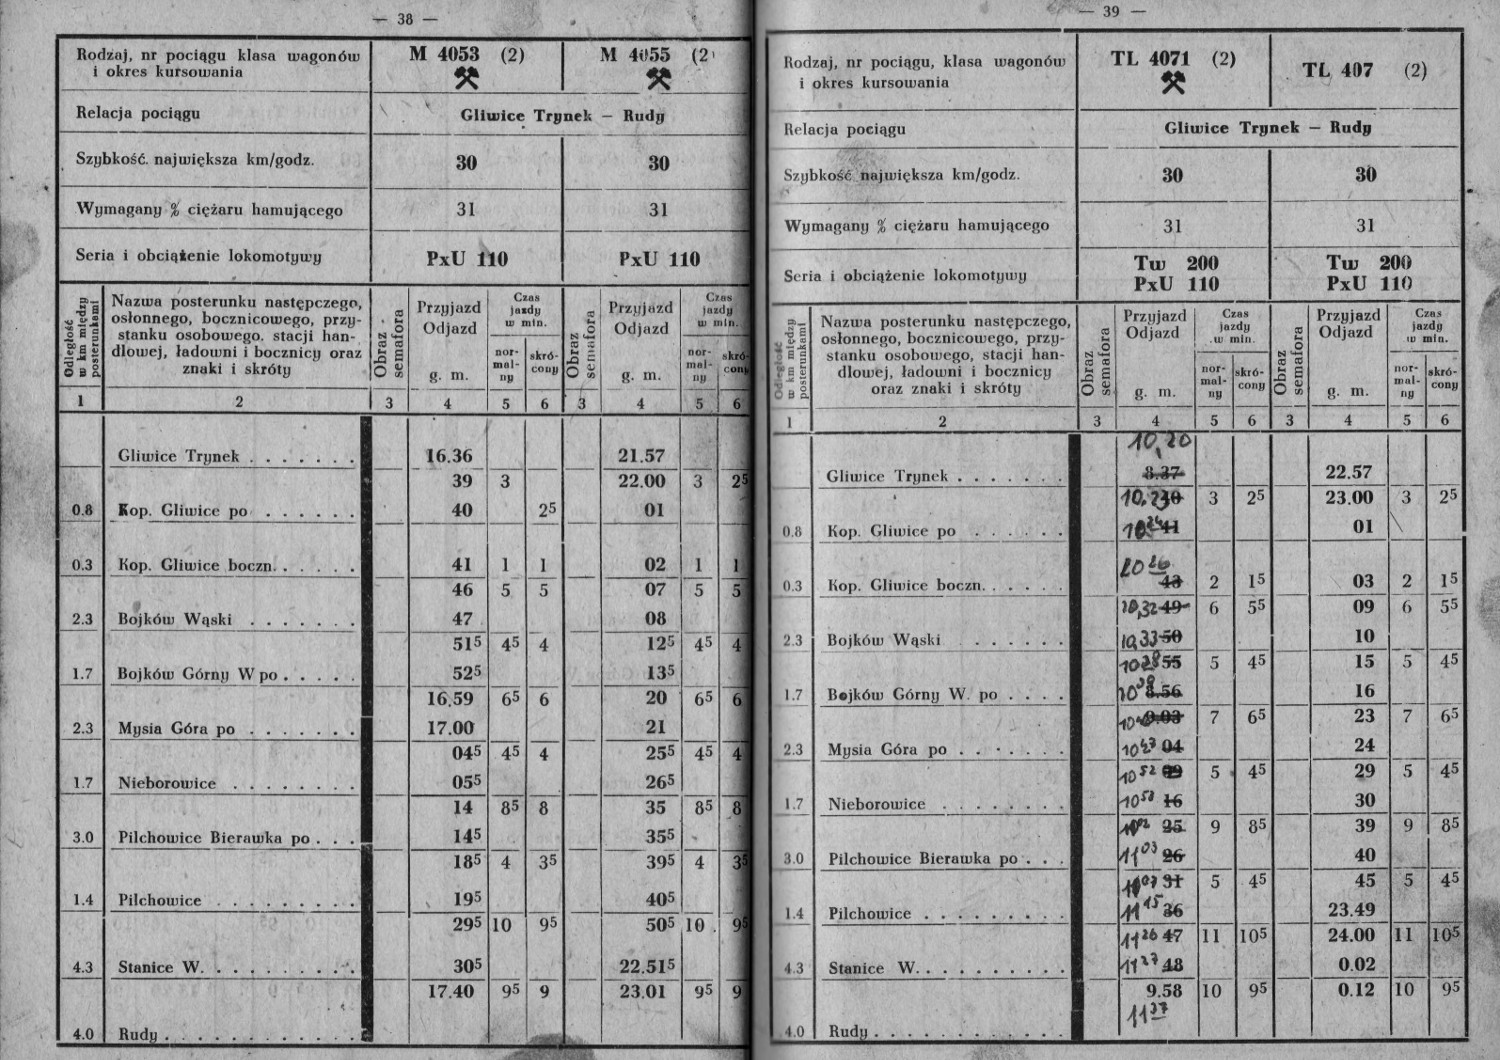 — 38 —
Rodzaj, nr pociągu klasa wagonów i okres kursowania M 4053 (2) M 4055 (2
Relacja pociągu Gliwice Trynek — Rudy
Szybkość największa km/godz. 30 30
Wymagany % ciężaru hamującego 31 31
Seria i obciążenie lokomotywy PxU 110 PxU 110
Odległość w km między posterunkami
Nazwa posterunku następczego, osłonnego, bocznicowego, przystanku osobowego. stacji handlowej, ładowni i bocznicy oraz znaki i skróty
Obraz semafora Przyjazd Odjazd g. m. Czas jazdy w min. normalny skrócony
Obraz semafora Przyjazd Odjazd g. m. Czas jazdy w min. normalny skrócony
1 2 3 4 5 6 3 4 5 6
Gliwice Trynek 16.36 21.57
39 3 22.00 3 25
0.8 Kop. Gliwice po 40 25 01
0.3 Kop. Gliwice boczn. 41 1 1 02 1 1
46 5 5 07 5 5
2.3 Bojków Wąski 47 08
515 45 4 125 45 4
1.7 Bojków Górny W po 525 135
16.59 65 6 20 65 6
2.3 Mysia Góra po 17.00 21
045 45 4 255 45 4
1.7 Nieborowice 055 265
14 85 8 35 85 8
3.0 Pilchowice Bierawka po 145 355
185 4 35 395 4 35
1.4 Pilchowice 195 405
295 10 95 505 10 95
4.3 Stanice W. 305 22.515
17.40 95 9 23.01 95 9
4.0 Rudy
— 39 —
Rodzaj, nr pociągu, klasa wagonów i okres kursowania TL 4071 (2) TL 407 (2)
Relacja pociągu Gliwice Trynek — Rudy
Szybkość największa km/godz. 30 30
Wymagany % ciężaru hamującego 31 31
Seria i obciążenie lokomotywy Tw 200 PxU 110 Tw 200 PxU 110
Odległość w km między posterunkami
Nazwa posterunku następczego, osłonnego, bocznicowego, przystanku osobowego, stacji handlowej, ładowni i bocznicy oraz znaki i skróty
Obraz semafora Przyjazd Odjazd g. m. Czas jazdy w min. normalny skrócony
Obraz semafora Przyjazd Odjazd g. m. Czas jazdy w min. normalny skrócony
1 2 3 4 5 6 3 4 5 6
10,20
Gliwice Trynek 8.37 22.57
3 25 23.00 3 25
0.8 Kop. Gliwice po 41 01
0.3 Kop. Gliwice boczn. 43 2 15 03 2 15
10,32 49 6 55 09 6 55
2.3 Bojków Wąski 10,33 50 10
10 38 55 5 45 15 5 45
1.7 Bojków Górny W. po 10 39 8.56 16
9.03 7 65 23 7 65
2.3 Mysia Góra po 10 47 04 24
10 52 09 5 45 29 5 45
1.7 Nieborowice 10 53 16 30
25 9 85 39 9 85
3.0 Pilchowice Bierawka po 11 03 26 40
31 5 45 45 5 45
1.4 Pilchowice 11 15 36 23.49
11 26 47 11 105 24.00 11 105
4.3 Stanice W. 11 27 48 0.02
9.58 10 95 0.12 10 95
11 37
4.0 Rudy